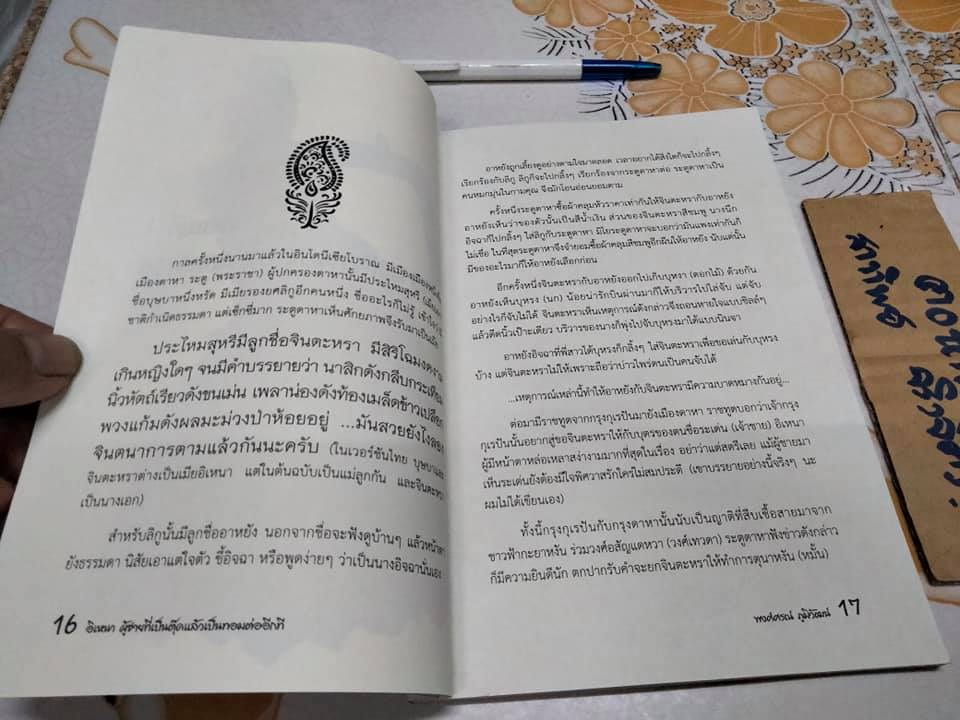 กาลครั้งหนึ่งนานมาแล้วในอินโดนีเซียโบราณ มีเมืองเมืองหนึ่งชื่อ
เมืองดาหา ระตู (พระราชา) ผู้ปกครองดาหานั้นมีประไหมสุหรี
ชื่อบุษบาหนึ่งหรัด มีเมียรองยศลิกูอีกคนหนึ่ง ชื่ออะไรก็ไม่รู้
ชาติกำเนิดธรรมดา แต่เซ็กซี่มาก ระตูดาหาเห็นศักยภาพจึงรับมาเป็นเมีย
ประไหมสุหรีมีลูกชื่อจินตะหรา มีสิริโฉมงดงาม
เกินหญิงใดๆ จนมีคำบรรยายว่า นาสิกดังกลีบกระเทียม
นิ้วหัตถ์เรียวดังขนเม่น เพลาน่องดังท้องเมล็ดข้าวเปลือก
พวงแก้มดังผลมะม่วงป่าห้อยอยู่ ...มันสวยยังไงลอง
จินตนาการตามแล้วกันนะครับ (ในเวอร์ชันไทย บุษบาและ
จินตะหราต่างเป็นเมียอิเหนา แต่ในต้นฉบับเป็นแม่ลูกกัน และจินตะหรา
เป็นนางเอก)
สำหรับลิกูนั้นมีลูกชื่ออาหยัง นอกจากชื่อจะฟังดูบ้านๆ แล้วหน้าตา
ยังธรรมดา นิสัยเอาแต่ใจตัว ขี้อิจฉา หรือพูดง่ายๆ ว่าเป็นนางอิจฉานั่นเอง
16 อิเหนา ผู้ชายที่เป็นตุ๊ดแล้วเป็นทอมต่ออีกที
อาหยังถูกเลี้ยงดูอย่างตามใจมาตลอด เวลาอยากได้สิ่งใดก็จะไปกลิ้งๆ
เรียกร้องกับลิกู ลิกูก็จะไปกลิ้งๆ เรียกร้องจากระตูดาหาต่อ ระตูดาหาเป็น
คนหมกมุ่นในกามคุณ จึงมักโอนอ่อนยอมตาม
ครั้งหนึ่งระตูดาหาซื้อผ้าคลุมหัวราคาเท่ากันให้จินตะหรากับอาหยัง
อาหยังเห็นว่าของตัวนั้นเป็นสีน้ำเงิน ส่วนของจินตะหราสีชมพู นางนึก
อิจฉาก็ไปกลิ้งๆ ใส่ลิกูกับระตูดาหา มิไยระตูดาหาจะบอกว่ามันแพงเท่ากันก็
ไม่เชื่อ ในที่สุดระตูดาหาจึงจำยอมซื้อผ้าคลุมสีชมพูอีกผืนให้อาหยัง นับแต่นั้น
มีของอะไรมาก็ให้อาหยังเลือกก่อน
อีกครั้งหนึ่งจินตะหรากับอาหยังออกไปเก็บบุหงา (ดอกไม้) ด้วยกัน
อาหยังเห็นบุหรง (นก) น้อยน่ารักบินผ่านมาก็ให้บริวารไปไล่จับ แต่จับ
อย่างไรก็จับไม่ได้ จินตะหราเห็นเหตุการณ์ดังกล่าวจึงถอนหายใจแบบชิลล์ๆ
แล้วดีดนิ้วเป๊าะเดียว บริวารของนางก็พุ่งไปจับบุหรงมาได้แบบนินจา
อาหยังอิจฉาที่พี่สาวได้บุหรงก็กลิ้งๆ ใส่จินตะหราเพื่อขอเล่นกับบุหรง
บ้าง แต่จินตะหราไม่ให้เพราะถือว่าบ่าวไพร่ตนเป็นคนจับได้
...เหตุการณ์เหล่านี้ทำให้อาหยังกับจินตะหรามีความบาดหมางกันอยู่...
ต่อมามีราชทูตจากกรุงกุเรปันมายังเมืองดาหา ราชทูตบอกว่าเจ้ากรุง
กุเรปันนั้นอยากสู่ขอจินตะหราให้กับบุตรของตนชื่อระเด่น (เจ้าชาย) อิเหนา
ผู้มีหน้าตาหล่อเหลาสง่างามมากที่สุดในเรื่อง อย่าว่าแต่สตรีเลย แม้ผู้ชายมา
เห็นระเด่นยังต้องมีใจพิศวาสรักใคร่ไม่สมประดี (เขาบรรยายอย่างนี้จริงๆ นะ
ผมไม่ได้เขียนเอง)
ทั้งนี้กรุงกุเรปันกับกรุงดาหานั้นนับเป็นญาติที่สืบเชื้อสายมาจาก
ชาวฟ้ากะยาหงัน ร่วมวงศ์อสัญแดหวา (วงศ์เทวดา) ระตูดาหาฟังข่าวดังกล่าว
ก็มีความยินดีนัก ตกปากรับคำจะยกจินตะหราให้ทำการตุนาหงัน (หมั้น)
พงศ์ศรณ์ ภูมิวัฒน์ 17